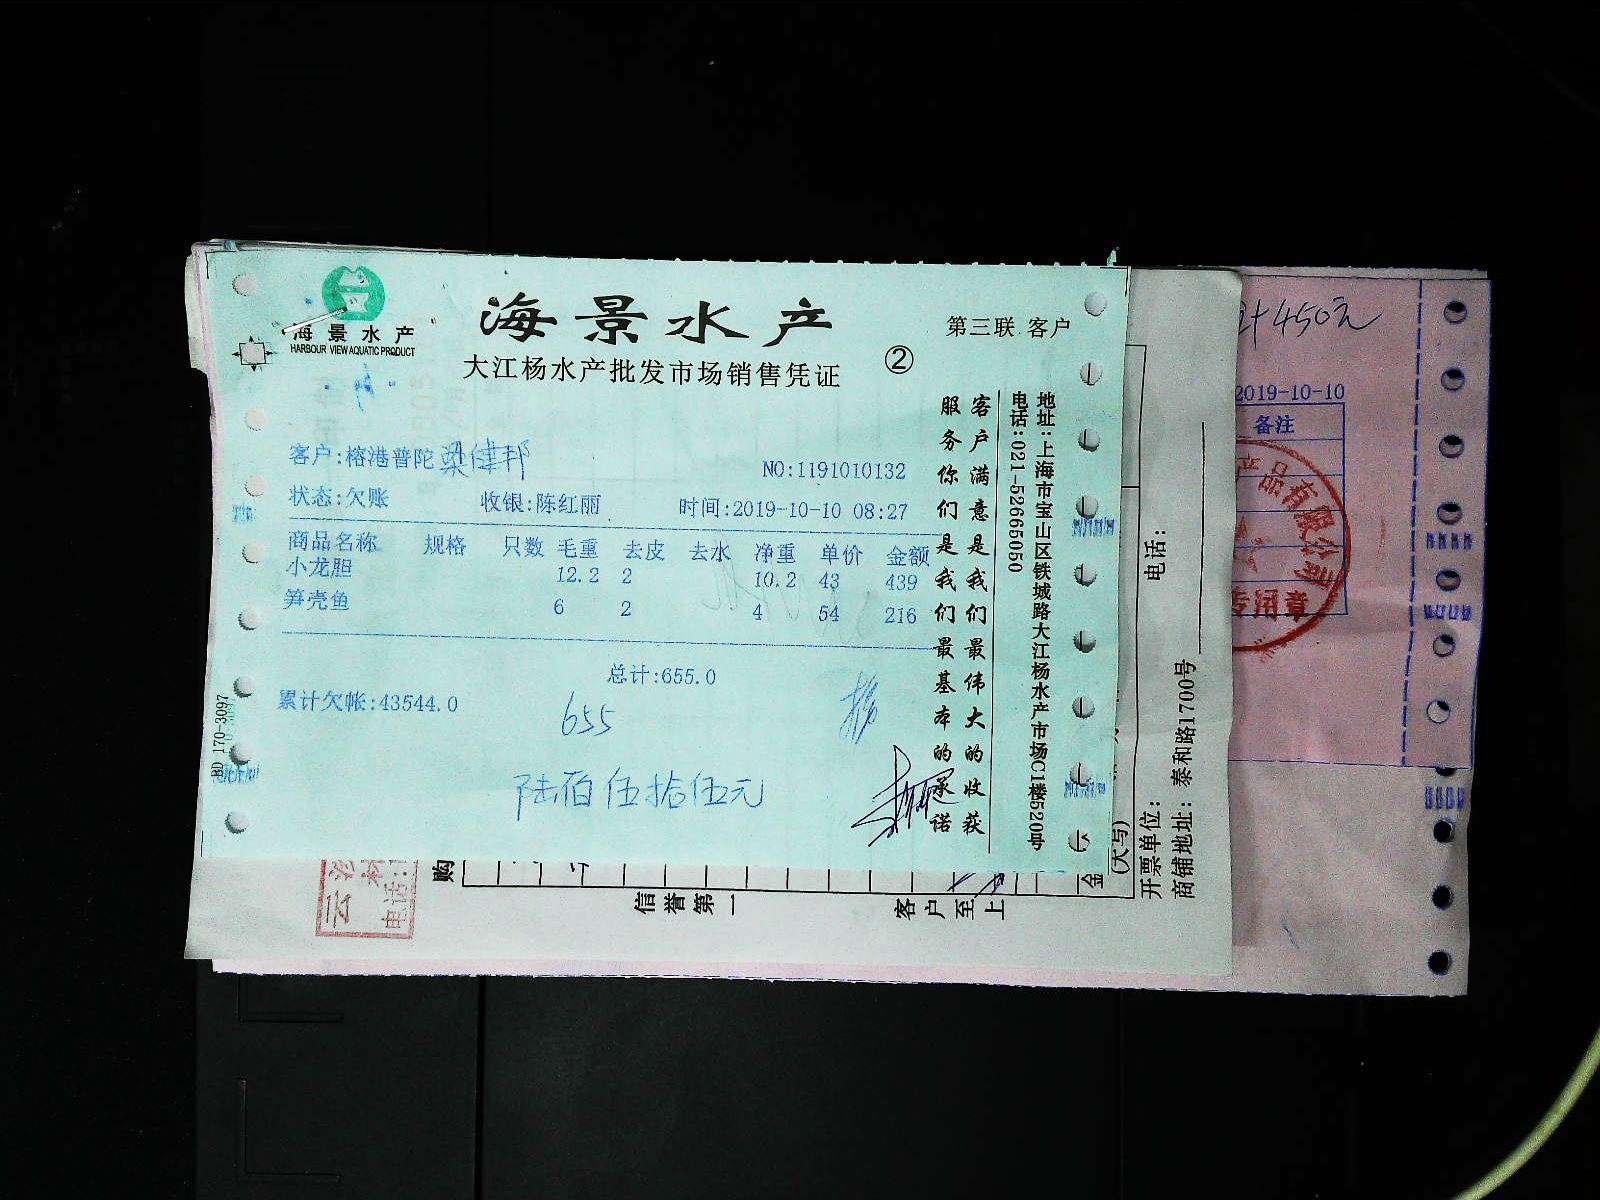 海景水产
HARBOUR VIEW AQUATIC PRODUCT
海景水产
大江杨水产批发市场销售凭证
②
第三联 客户
客户:榕港普陀 梁健邦
NO:1191010132
状态:欠账 收银:陈红丽 时间:2019-10-10 08:27
商品名称 规格 只数 毛重 去皮 去水 净重 单价 金额
小龙胆 12.2 2 10.2 43 439
笋壳鱼 6 2 4 54 216
总计:655.0
累计欠帐:43544.0
655
陆佰伍拾伍元
客户满意是我们最伟大的收获
服务你们是我们最基本的承诺
地址:上海市宝山区铁城路大江杨水产市场C1楼520号
电话:021-52665050
BD 170-3097
购
信誉第一
客户至上
金
(大写)
开票单位:
电话:
商铺地址: 泰和路1700号
电话:
计450元
2019-10-10
备注
产品有限公司
专用章